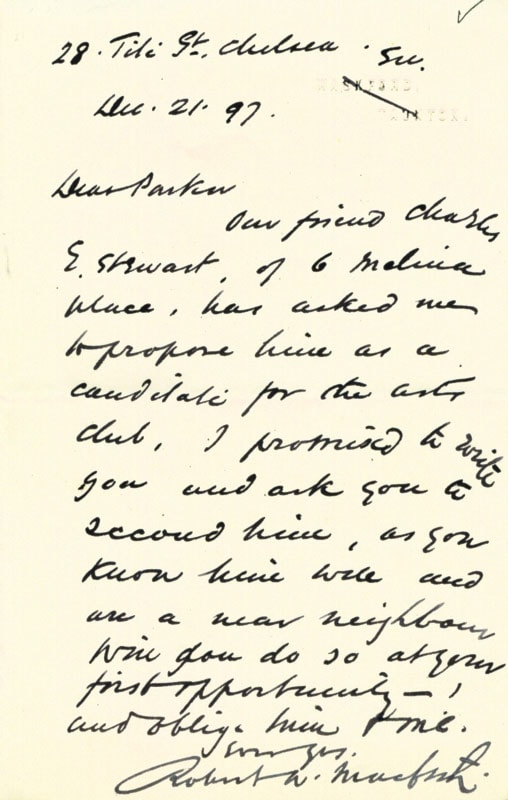 28. Tite St. Chelsea. SW.
Dec. 21. 97.
Dear Parker
Our friend Charles
E. Stewart, of 6 Melina
place, has asked me
to propose him as a
candidate for the arts
club, I promised to write
you and ask you to
second him, as you
know him well and
are a near neighbour
will you do so at your
first opportunity — !
and oblige him & me.
Ever yrs.
Robert W. Macbeth.